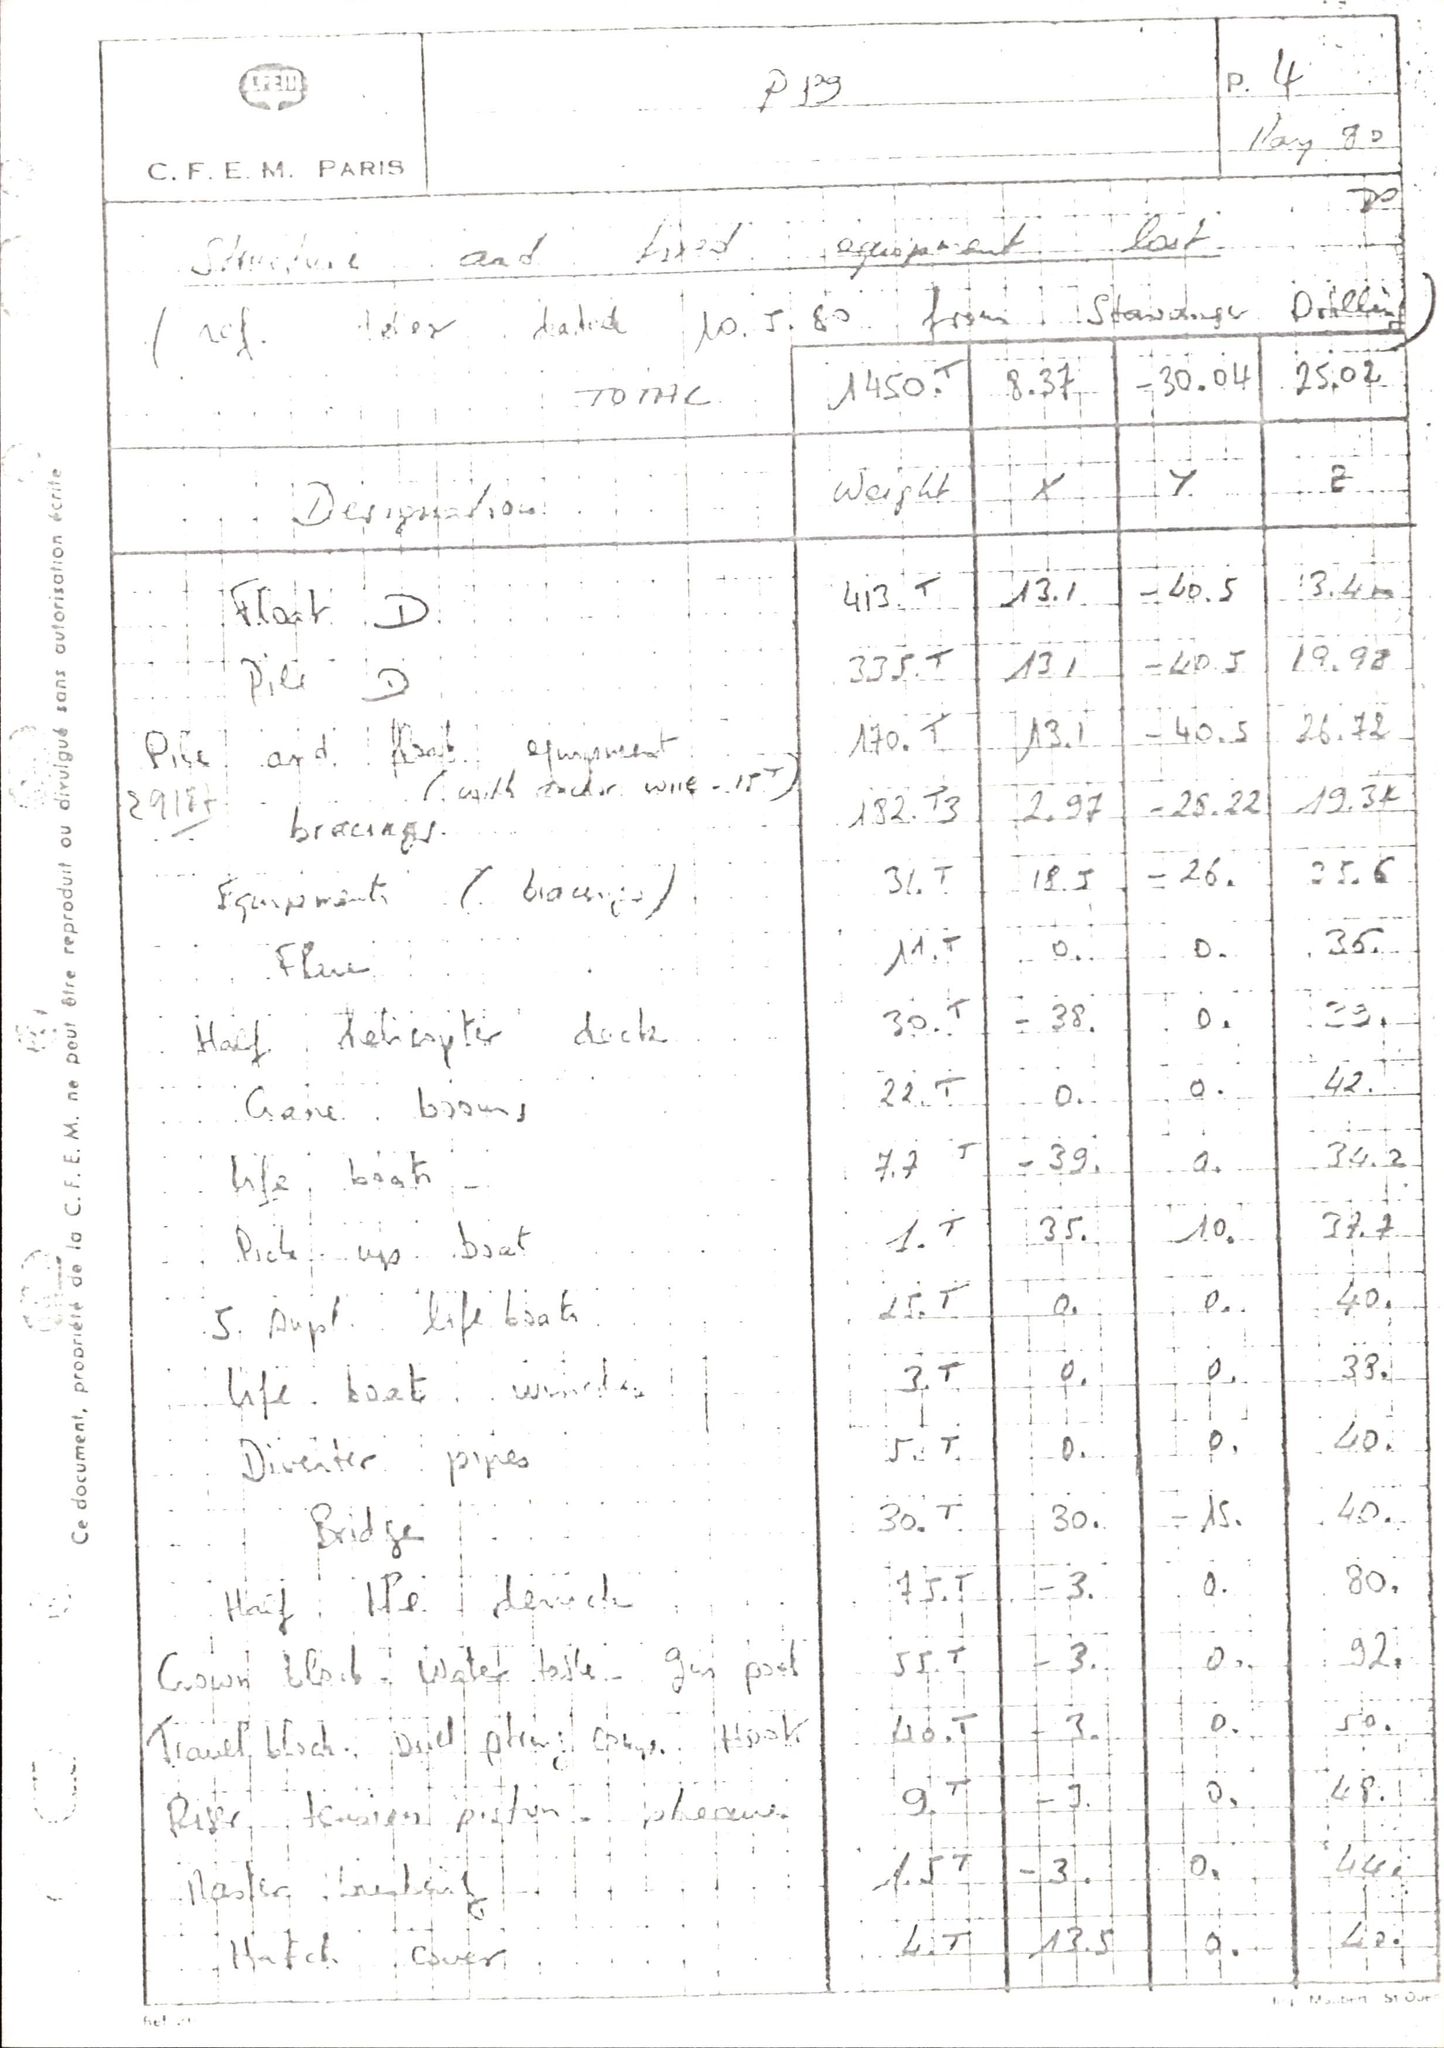 C. F. E. M. PARIS
P 139
P. 4
May 80
Structure and fixed equipment lost
( ref. telex dated 10.5.80 from Stavanger Drilling )
TOTAL 1450.T 8.37 -30.04 25.02
Designation Weight X Y Z
Float D 413.T 13.1 -40.5 3.4
Pile D 335.T 13.1 -40.5 19.98
Pile and float equipment 170.T 13.1 -40.5 26.72
(with anchor wire - 15T)
bracings 182.T3 2.97 -28.22 19.34
Equipments (bracings) 31.T 18.5 -26. 25.6
Flare 11.T 0. 0. 36.
Half helicopter deck 30.T -38. 0. 39.
Crane booms 22.T 0. 0. 42.
Life boats - 7.7 T -39. 0. 34.2
Pick up boat 1.T 35. 10. 37.7
5. supl. life boats 25.T 0. 0. 40.
Life boat winches 3.T 0. 0. 38.
Diverter pipes 5.T 0. 0. 40.
Bridge 30.T 30. -15. 40.
Half the derrick 75.T -3. 0. 80.
Crown block - Water table - Gin post 55.T -3. 0. 92.
Travel block. Drill string comp. Hook 40.T -3. 0. 50.
Riser tension piston - sheaves 9.T -3. 0. 48.
Master bushing 1.5T -3. 0. 44.
Hatch cover 4.T 13.5 0. 40.
Ce document, propriété de la C. F. E. M. ne peut être reproduit ou divulgué sans autorisation écrite